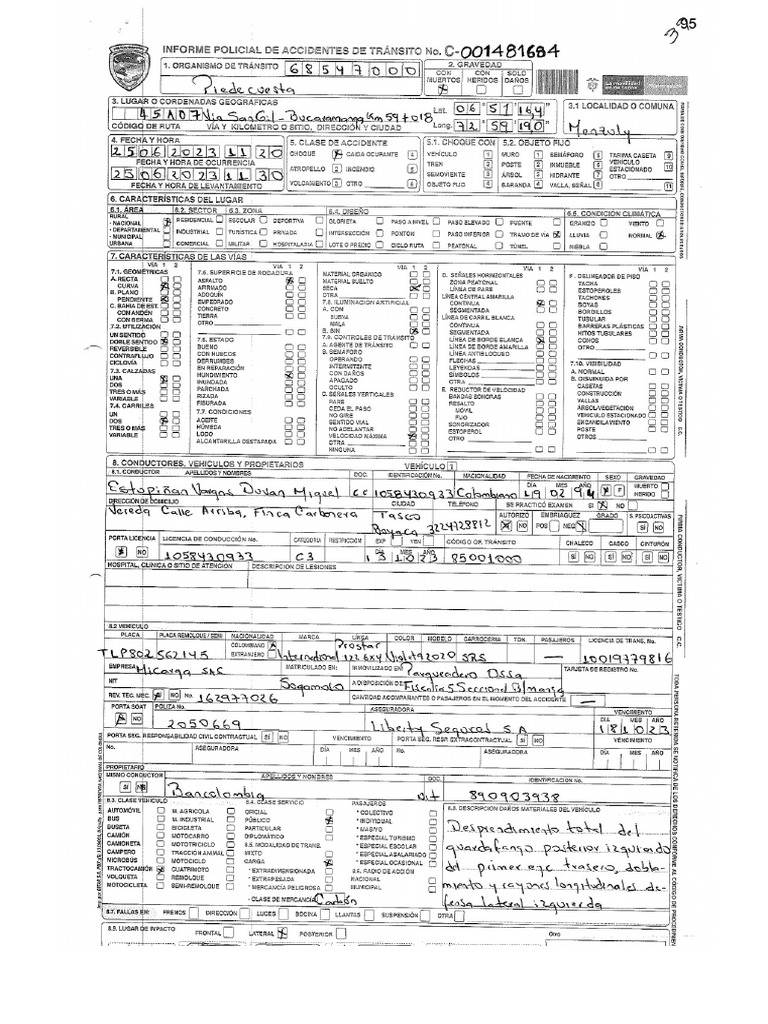 395
INFORME POLICIAL DE ACCIDENTES DE TRÁNSITO No. C-001481684
1. ORGANISMO DE TRÁNSITO 68547000
Piedecuesta
2. GRAVEDAD
CON MUERTOS CON HERIDOS SOLO DAÑOS
3. LUGAR O CORDENADAS GEOGRAFICAS
45A07 Via San Gil - Bucaramanga Km 59+018
Lat. 06 51 16,4
Long. 72 59 19,0
CÓDIGO DE RUTA VÍA Y KILOMETRO O SITIO, DIRECCIÓN Y CIUDAD
3.1 LOCALIDAD O COMUNA
4. FECHA Y HORA
25062023 1120
FECHA Y HORA DE OCURRENCIA
25062023 1130
FECHA Y HORA DE LEVANTAMIENTO
5. CLASE DE ACCIDENTE
CHOQUE CAIDA OCUPANTE 4
ATROPELLO 2 INCENDIO 5
VOLCAMIENTO 3 OTRO 6
5.1. CHOQUE CON
VEHÍCULO 1
TREN 2
SEMOVIENTE 3
OBJETO FIJO 4
5.2. OBJETO FIJO
MURO 1 SEMÁFORO 5 TARIMA CASETA 9
POSTE 2 INMUEBLE 6 VEHICULO ESTACIONADO 10
ÁRBOL 3 HIDRANTE 7 OTRO
BARANDA 4 VALLA, SEÑAL 8 11
6. CARACTERÍSTICAS DEL LUGAR
6.1. ÁREA 6.2. SECTOR 6.3. ZONA 6.4. DISEÑO 6.5. CONDICIÓN CLIMÁTICA
RURAL
- NACIONAL
- DEPARTAMENTAL
- MUNICIPAL
URBANA
RESIDENCIAL ESCOLAR DEPORTIVA GLORIETA PASO A NIVEL PASO ELEVADO PUENTE GRANIZO VIENTO
INDUSTRIAL TURÍSTICA PRIVADA INTERSECCIÓN PONTON PASO INFERIOR TRAMO DE VÍA LLUVIA NORMAL
COMERCIAL MILITAR HOSPITALARIA LOTE O PREDIO CICLO RUTA PEATONAL TÚNEL NIEBLA
7. CARACTERÍSTICAS DE LAS VÍAS
VÍA 1 2
7.1. GEOMÉTRICAS
A. RECTA
CURVA
B. PLANO
PENDIENTE
C. BAHÍA DE EST.
CON ANDÉN
CON BERMA
7.2. UTILIZACIÓN
UN SENTIDO
DOBLE SENTIDO
REVERSIBLE
CONTRAFLUJO
CICLOVÍA
7.3. CALZADAS
UNA
DOS
TRES O MÁS
VARIABLE
7.4. CARRILES
UN
DOS
TRES O MÁS
VARIABLE
7.5. SUPERFICIE DE RODADURA
ASFALTO
AFIRMADO
ADOQUÍN
EMPEDRADO
CONCRETO
TIERRA
OTRO
7.6. ESTADO
BUENO
CON HUECOS
DERRUMBES
EN REPARACIÓN
HUNDIMIENTO
INUNDADA
PARCHADA
RIZADA
FISURADA
7.7. CONDICIONES
ACEITE
HÚMEDA
LODO
ALCANTARILLA DESTAPADA
MATERIAL ORGANICO
MATERIAL SUELTO
SECA
OTRA
7.8. ILUMINACIÓN ARTIFICIAL
A. CON
BUENA
MALA
B. SIN
7.9. CONTROLES DE TRÁNSITO
A. AGENTE DE TRÁNSITO
B. SEMAFORO
OPERANDO
INTERMITENTE
CON DAÑOS
APAGADO
OCULTO
C. SEÑALES VERTICALES
PARE
CEDA EL PASO
NO GIRE
SENTIDO VIAL
NO ADELANTAR
VELOCIDAD MÁXIMA
OTRA
NINGUNA
D. SEÑALES HORIZONTALES
ZONA PEATONAL
LÍNEA DE PARE
LÍNEA CENTRAL AMARILLA
CONTINUA
SEGMENTADA
LÍNEA DE CARRIL BLANCA
CONTINUA
SEGMENTADA
LÍNEA DE BORDE BLANCA
LÍNEA DE BORDE AMARILLA
LÍNEA ANTIBLOQUEO
FLECHAS
LEYENDAS
SÍMBOLOS
OTRA
E. REDUCTOR DE VELOCIDAD
BANDAS SONORAS
RESALTO
MÓVIL
FIJO
SONORIZADOR
ESTOPEROL
OTRO
F. DELINEADOR DE PISO
TACHA
ESTOPEROLES
TACHONES
BOYAS
BORDILLOS
TUBULAR
BARRERAS PLÁSTICAS
HITOS TUBULARES
CONOS
OTRO
7.10. VISIBILIDAD
A. NORMAL
B. DISMINUIDA POR
CASETAS
CONSTRUCCIÓN
VALLAS
ÁRBOL/VEGETACIÓN
VEHICULO ESTACIONADO
ENCANDILAMIENTO
POSTE
OTROS
8. CONDUCTORES, VEHICULOS Y PROPIETARIOS VEHÍCULO 1
8.1. CONDUCTOR APELLIDOS Y NOMBRES DOC. IDENTIFICACIÓN No. NACIONALIDAD FECHA DE NACIMIENTO SEXO GRAVEDAD
Estupiñan Vargas Duvan Miguel CC 1058430933 Colombiano 19 02 94 F MUERTO HERIDO
DIRECCIÓN DE DOMICILIO CIUDAD TELEFONO SE PRACTICÓ EXAMEN SI NO
Vereda Calle Arriba, Finca Carbonera Tasco Boyaca 3224728812
AUTORIZO EMBRIAGUEZ GRADO S. PSICOACTIVAS
NO POS NEG SI NO
PORTA LICENCIA LICENCIA DE CONDUCCIÓN No. CATEGORÍA RESTRICCIÓN EXP VEN DÍA MES AÑO CÓDIGO OF. TRÁNSITO CHALECO CASCO CINTURÓN
NO 1058430933 C3 131023 85001000 SI NO SI NO SI NO
HOSPITAL, CLÍNICA O SITIO DE ATENCIÓN DESCRIPCIÓN DE LESIONES
8.2 VEHICULO
PLACA PLACA REMOLQUE / SEMI NACIONALIDAD MARCA LÍNEA COLOR MODELO CARROCERIA TON. PASAJEROS LICENCIA DE TRANS. No.
COLOMBIANO
EXTRANJERO
TLP802 S62145 International Prostar 122 6x4 Violeta 2020 SRS — 10019779816
EMPRESA Micarga SAS MATRICULADO EN: INMOVILIZADO EN: Parqueadero Ossa TARJETA DE REGISTRO No.
NIT Sogamoso A DISPOSICIÓN DE: Fiscalia 5 Seccional B/manga
REV. TEC. MEC. NO No. 162977026 CANTIDAD ACOMPAÑANTES O PASAJEROS EN EL MOMENTO DEL ACCIDENTE —
PORTA SOAT POLIZA No. ASEGURADORA VENCIMIENTO
NO 2050669 Liberty Seguros S.A DÍA MES AÑO 181023
PORTA SEG. RESPONSABILIDAD CIVIL CONTRACTUAL SI NO VENCIMIENTO PORTA SEG. RESP. EXTRACONTRACTUAL SI NO VENCIMIENTO
No. ASEGURADORA DÍA MES AÑO No. ASEGURADORA DÍA MES AÑO
PROPIETARIO
MISMO CONDUCTOR APELLIDOS Y NOMBRES DOC. IDENTIFICACIÓN No.
SI NO Bancolombia Nit 890903938
8.3. CLASE VEHICULO
AUTOMÓVIL
BUS
BUSETA
CAMIÓN
CAMIONETA
CAMPERO
MICROBUS
TRACTOCAMIÓN
VOLQUETA
MOTOCICLETA
M. AGRICOLA
M. INDUSTRIAL
BICICLETA
MOTOCARRO
MOTOTRICICLO
TRACCIÓN ANIMAL
MOTOCICLO
CUATRIMOTO
REMOLQUE
SEMI-REMOLQUE
8.4. CLASE SERVICIO
OFICIAL
PÚBLICO
PARTICULAR
DIPLOMÁTICO
8.5. MODALIDAD DE TRANS.
MIXTO
CARGA
* EXTRADIMENSIONADA
* EXTRAPESADA
* MERCANCÍA PELIGROSA
- CLASE DE MERCANCÍA Carbón
PASAJEROS
* COLECTIVO
* INDIVIDUAL
* MASIVO
* ESPECIAL TURISMO
* ESPECIAL ESCOLAR
* ESPECIAL ASALARIADO
* ESPECIAL OCASIONAL
8.6. RADIO DE ACCIÓN
NACIONAL
MUNICIPAL
8.8. DESCRIPCIÓN DAÑOS MATERIALES DEL VEHÍCULO
Desprendimiento total del
guardafango posterior izquierdo
del primer eje trasero, dobla-
miento y rayones longitudinales de-
fensa lateral izquierda
8.7. FALLAS EN: FRENOS DIRECCIÓN LUCES BOCINA LLANTAS SUSPENSIÓN OTRA
8.9. LUGAR DE IMPACTO FRONTAL LATERAL POSTERIOR Otro